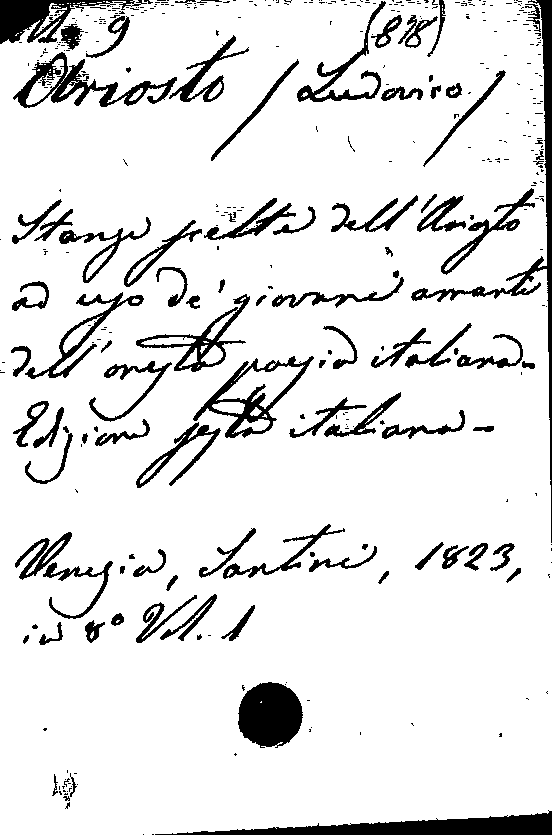 M. 9 (878)
Ariosto / Ludovico /
Stanze scelte dell'Ariosto
ad uso de' giovani amanti
dell'onesta poesia italiana.
Edizione sesta italiana -
Venezia, Santini, 1823,
in 8° Vol. 1